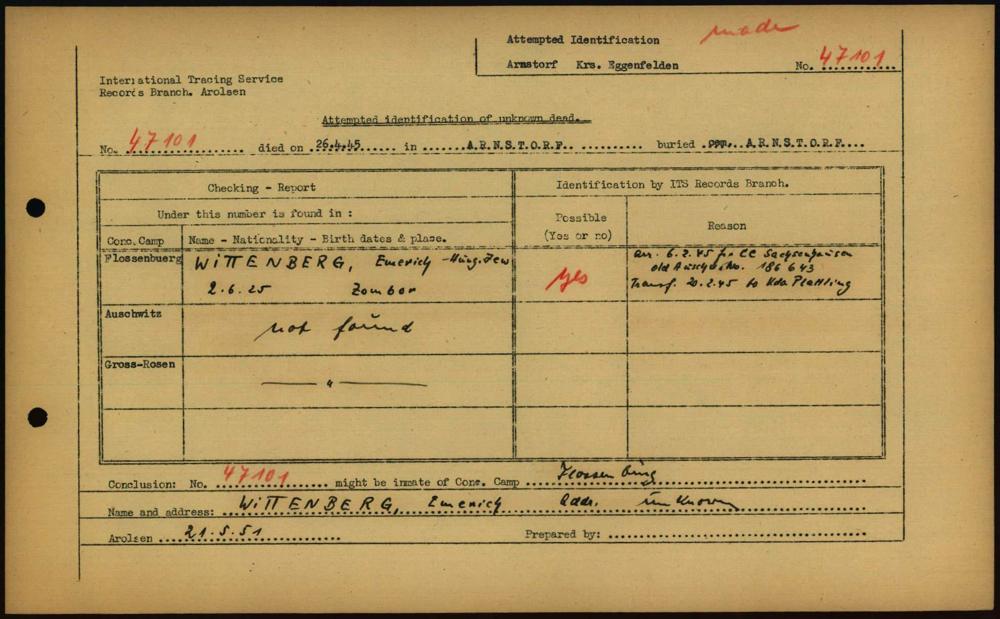 made
Attempted Identification
Arnstorf Krs. Eggenfelden No. 47101
International Tracing Service
Records Branch. Arolsen
Attempted identification of unknown dead.
No. 47101 died on 26.4.45 in A.R.N.S.T.O.R.F. buried cem. A.R.N.S.T.O.R.F.
Checking - Report
Identification by ITS Records Branch.
Under this number is found in :
Possible
(Yes or no)
Reason
Conc. Camp Name - Nationality - Birth dates & place.
Flossenbuerg WITTENBERG, Emerich - Hung. Jew
2.6.25 Zombor
yes
arr. 6.2.45 fr CC Sachsenhausen
old Auschw. No. 186643
Transf. 20.2.45 to Kdo Plattling
Auschwitz not found
Gross-Rosen — " —
Conclusion: No. 47101 might be inmate of Conc. Camp Flossenbürg
Name and address: WITTENBERG, Emerich Addr. unknown
Arolsen 21.5.51 Prepared by: